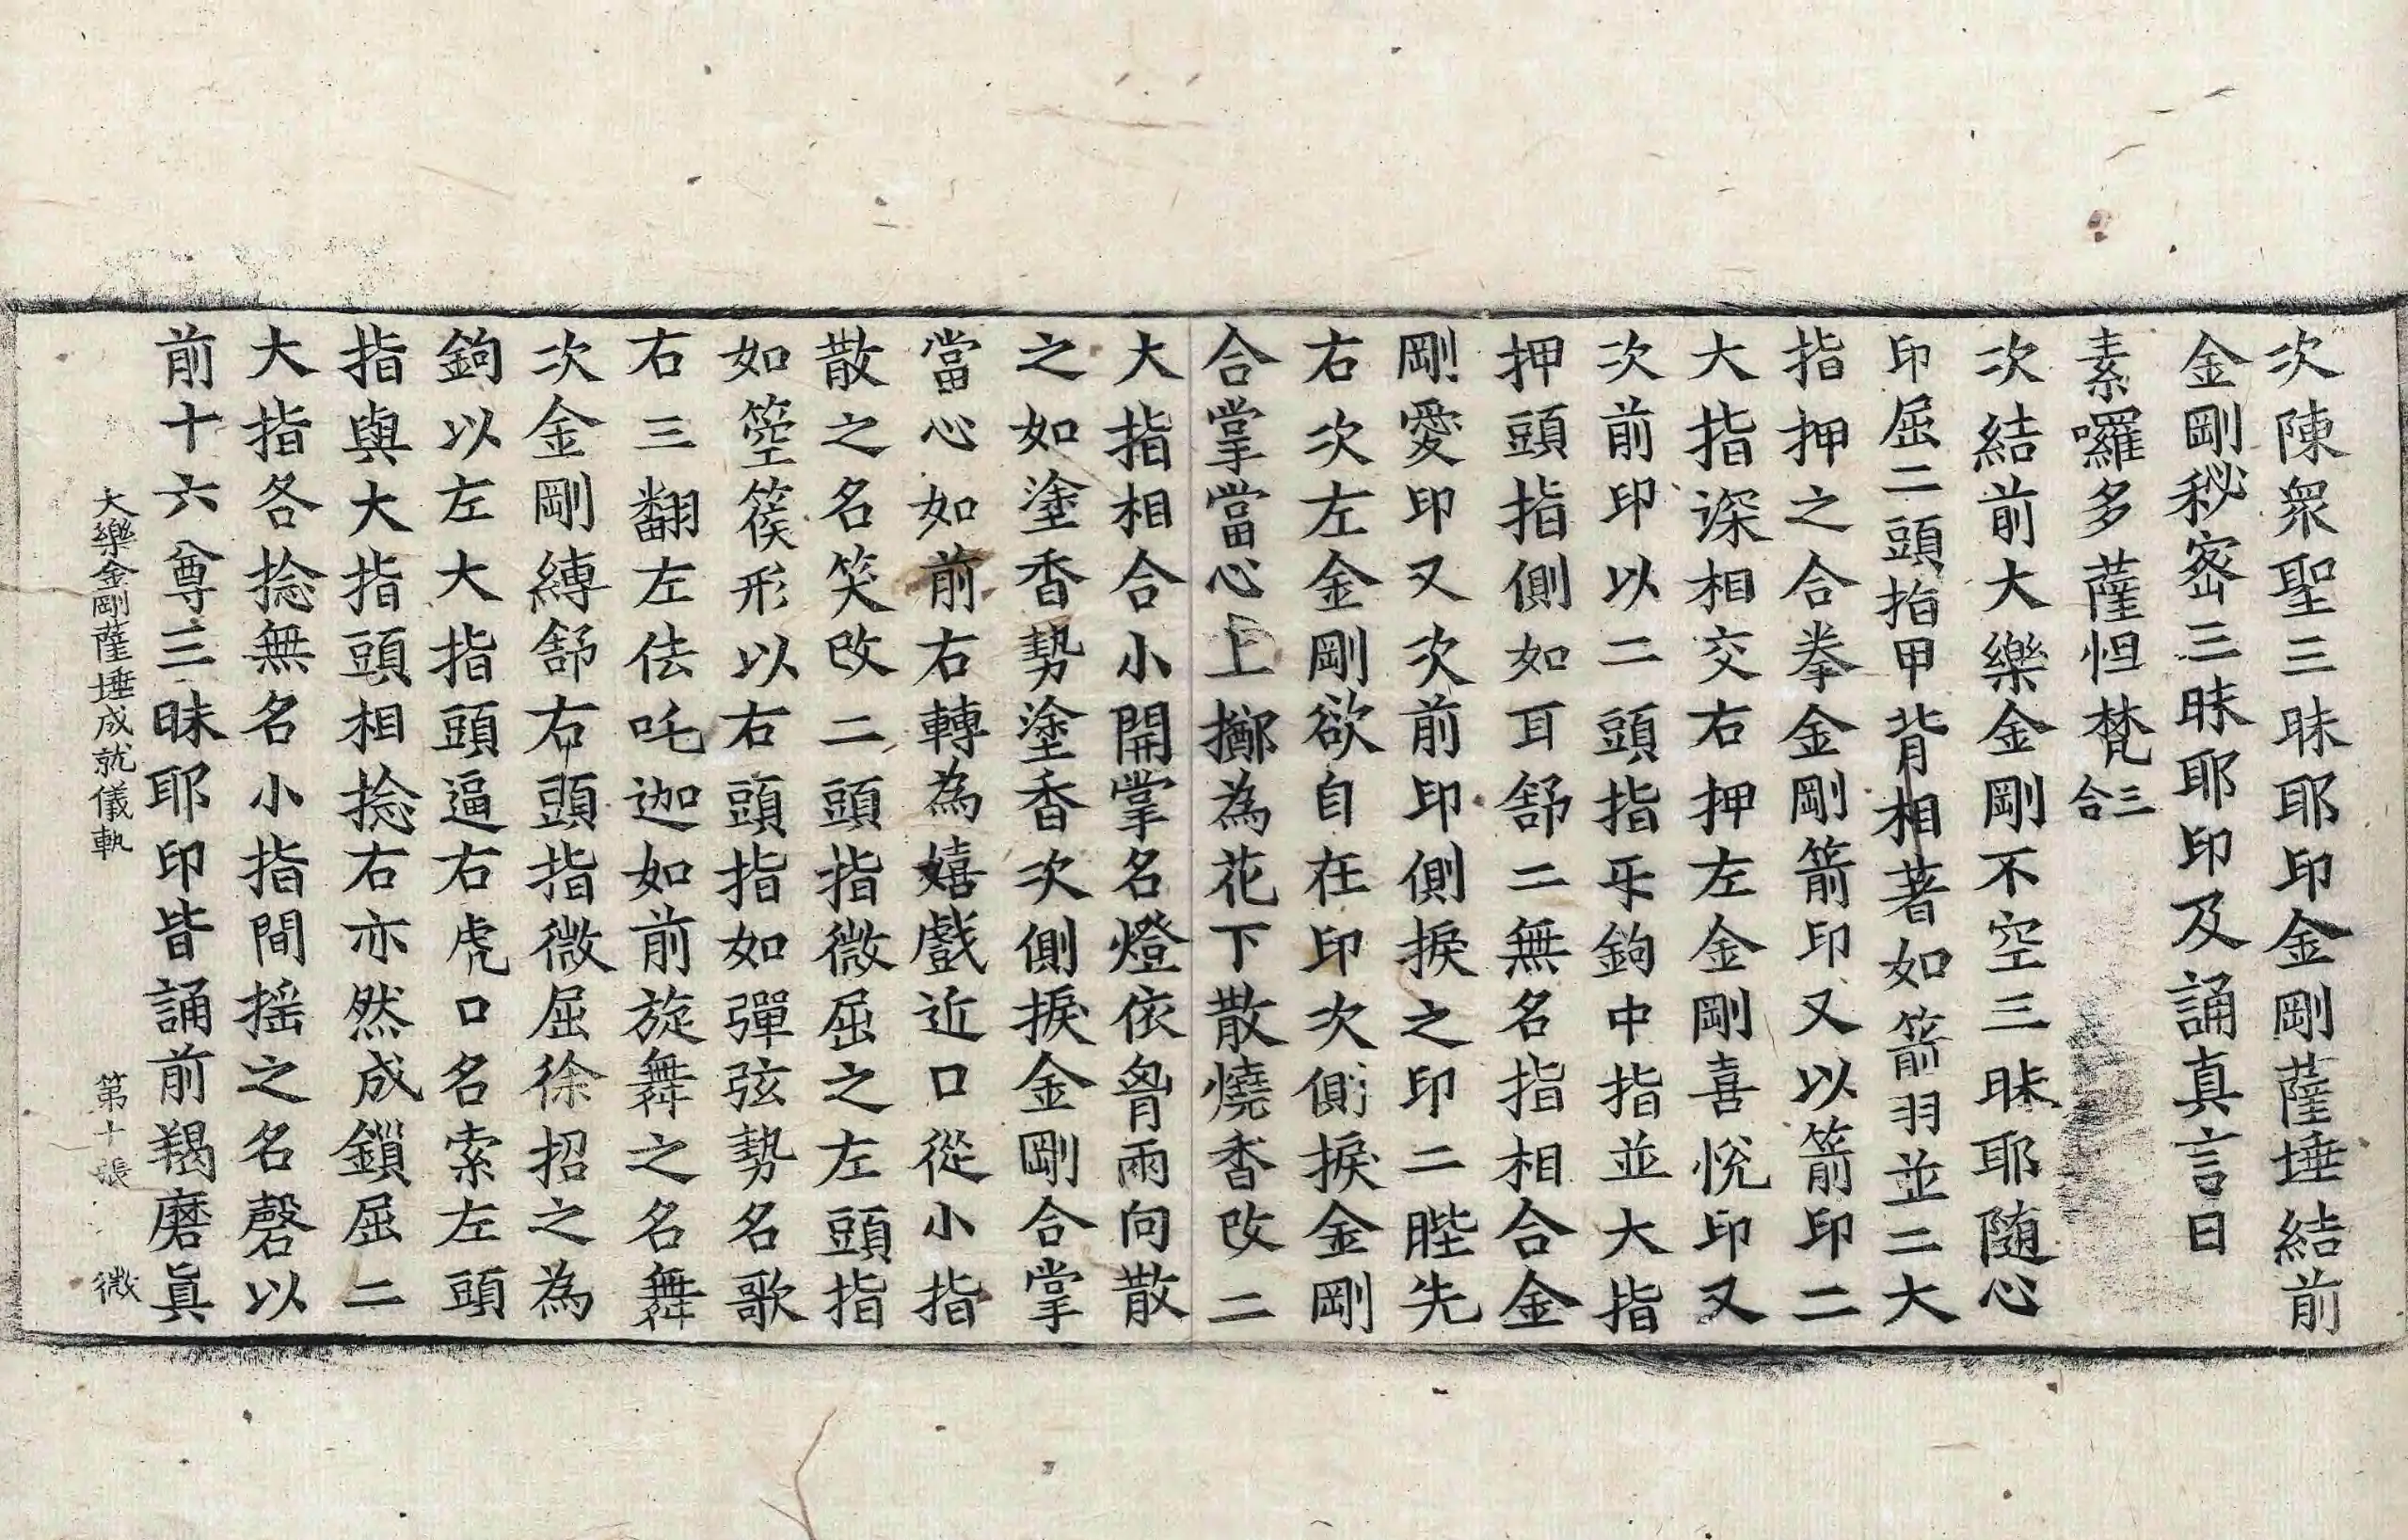 次陳衆聖三昧耶印金剛薩埵結前
金剛秘密三昧耶印及誦真言曰
素囉多薩怛梵三合
次結前大樂金剛不空三昧耶随心
印屈二頭指甲背相著如箭羽並二大
指押之合拳金剛箭印又以箭印二
大指深相交右押左金剛喜悅印又
次前印以二頭指㸦鉤中指並大指
押頭指側如耳舒二無名指相合金
剛愛印又次前印側捩之印二䏶先
右次左金剛欲自在印次側捩金剛
合掌當心上擲為花下散燒香改二
大指相合小開掌名燈依𦙄兩向散
之如塗香勢塗香次側捩金剛合掌
當心如前右轉為嬉戲近口從小指
散之名笑改二頭指微屈之左頭指
如箜篌形以右頭指如彈弦勢名歌
右三翻左佉吒迦如前旋舞之名舞
次金剛縛舒右頭指微屈徐招之為
鉤以左大指頭逼右虎口名索左頭
指與大指頭相捻右亦然成鎖屈二
大指各捻無名小指間揺之名磬以
前十六尊三昧耶印皆誦前羯磨真
大樂金剛薩埵成就儀軌 第十張 微